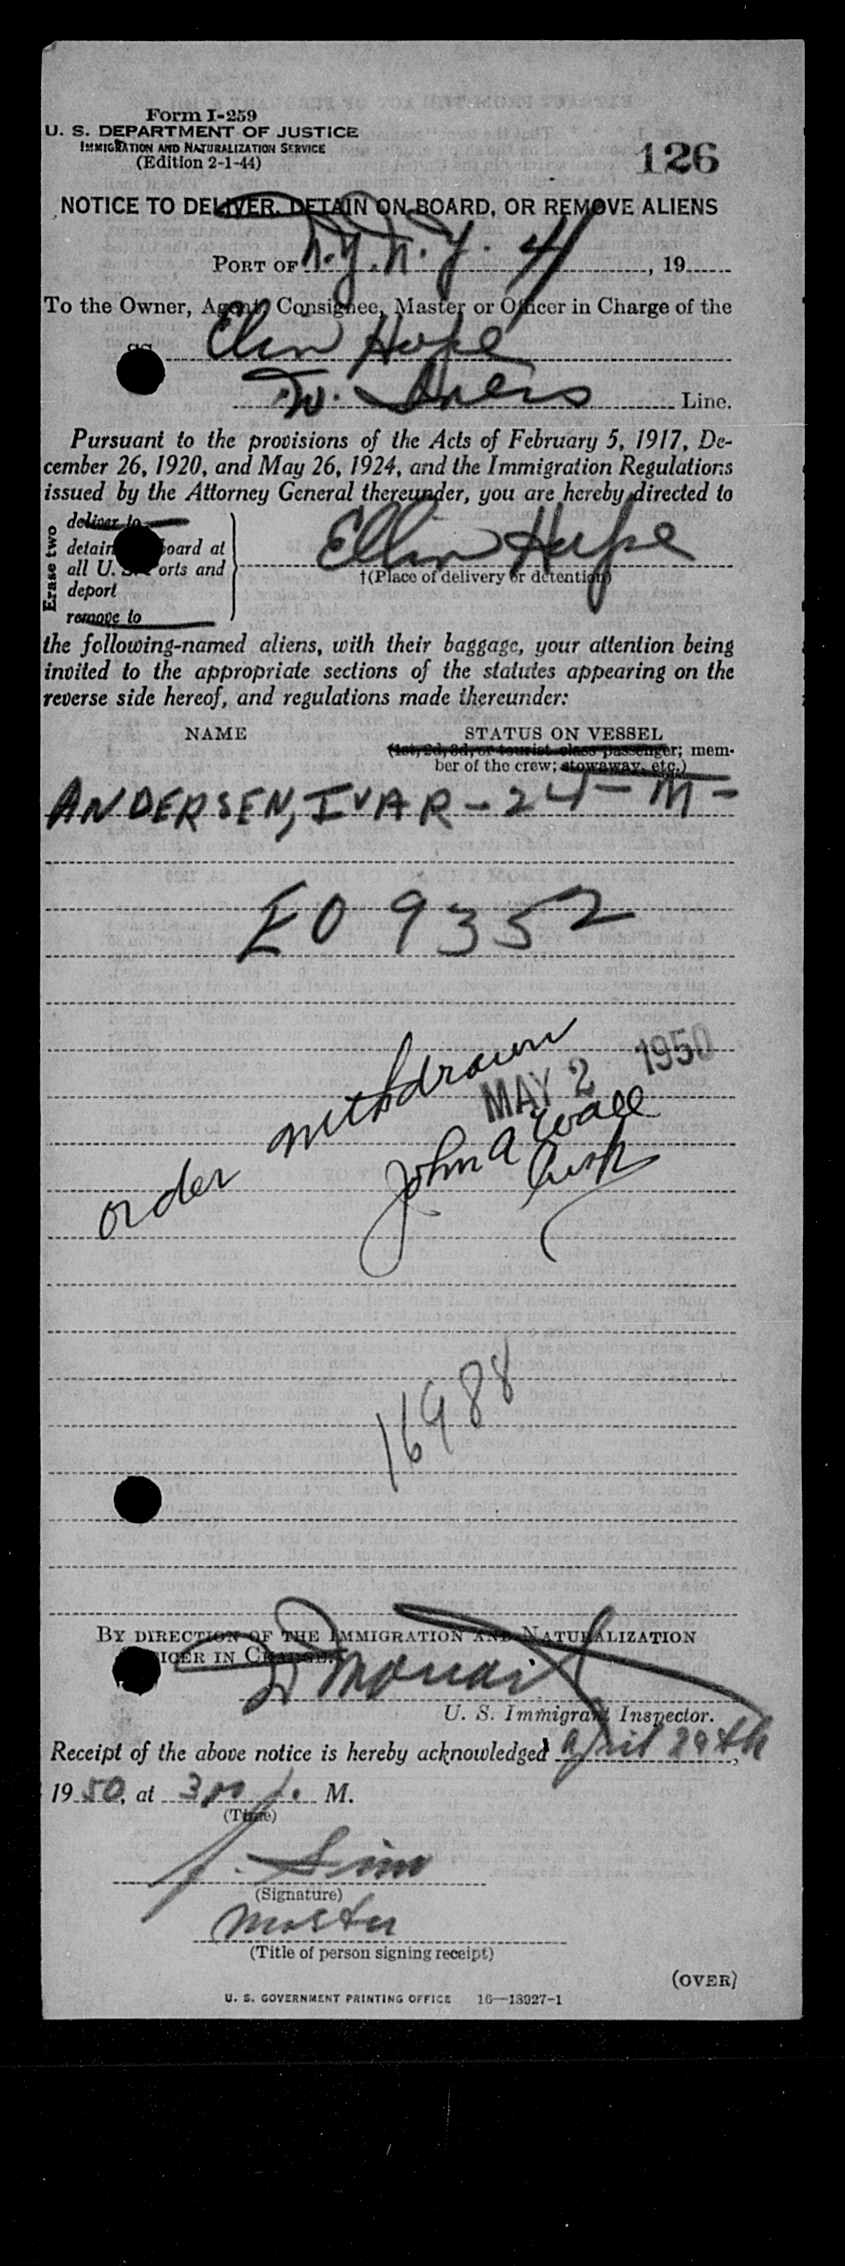 Form I-259
U. S. DEPARTMENT OF JUSTICE
IMMIGRATION AND NATURALIZATION SERVICE
(Edition 2-1-44)
126
NOTICE TO DELIVER, DETAIN ON BOARD, OR REMOVE ALIENS
PORT OF N.Y. N.Y. , 19
To the Owner, Agent, Consignee, Master or Officer in Charge of the
SS Elin Hope
Line.
Pursuant to the provisions of the Acts of February 5, 1917, De-
cember 26, 1920, and May 26, 1924, and the Immigration Regulations
issued by the Attorney General thereunder, you are hereby directed to
Erase two
deliver to
detain on board at
all U. S. ports and
deport
remove to
Ellin Hope
†(Place of delivery or detention)
the following-named aliens, with their baggage, your attention being
invited to the appropriate sections of the statutes appearing on the
reverse side hereof, and regulations made thereunder:
NAME STATUS ON VESSEL
(1st, 2d, 3d, or tourist class passenger; mem-
ber of the crew; stowaway, etc.)
ANDERSEN, IVAR - 24 - M -
EO 9352
order withdrawn
MAY 2 1950
John A Wall
16988
BY DIRECTION OF THE IMMIGRATION AND NATURALIZATION
OFFICER IN CHARGE.
U. S. Immigrant Inspector.
Receipt of the above notice is hereby acknowledged April 29th,
1950, at 300 p. M.
(Time)
(Signature)
Master
(Title of person signing receipt)
(OVER)
U. S. GOVERNMENT PRINTING OFFICE 16—13927-1